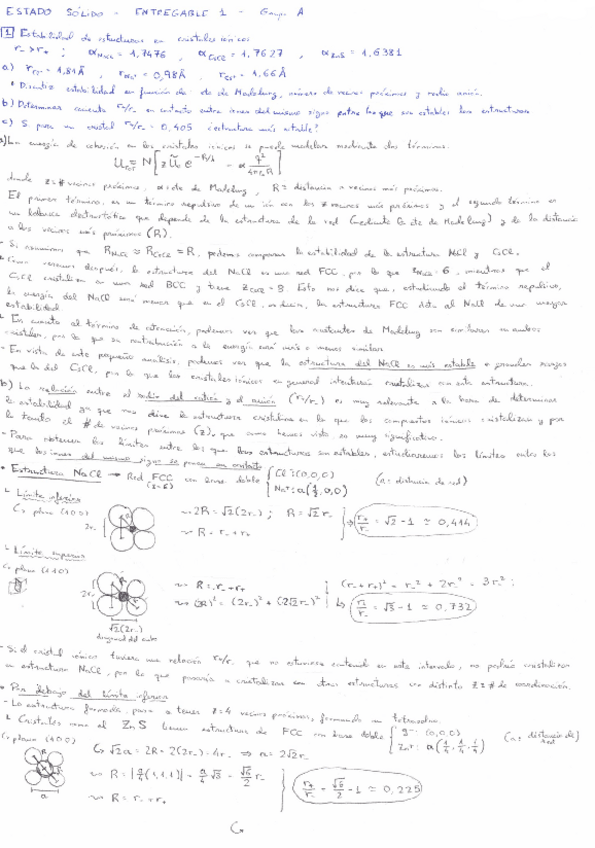 ESTADO SÓLIDO - ENTREGABLE 1 - Grupo A
1 Estabilidad de estructuras en cristales iónicos
r- > r+ ; α NaCl = 1,7476 , α CsCl = 1,7627 , α ZnS = 1,6381
a) r Cl- = 1,81 Å , r Na+ = 0,98 Å , r Cs+ = 1,66 Å
Discutir estabilidad en función de cte de Madelung, número de vecinos próximos y radio anión.
b) Determinar r+/r- en contacto entre iones del mismo signo entre los que son estables las estructuras
c) Si para un cristal r+/r- = 0,405 ¿estructura más estable?
a) La energía de cohesión en los cristales iónicos se puede modelizar mediante dos términos:
donde z = # vecinos próximos, α = cte de Madelung, R = distancia a vecinos más próximos.
El primer término, es un término repulsivo de un ión con los z vecinos más próximos y el segundo término es
un balance electrostático que depende de la estructura de la red (mediante la cte de Madelung) y de la distancia
a los vecinos más próximos (R).
- Si asumimos que R NaCl ≈ R CsCl = R, podemos comparar la estabilidad de la estructura NaCl y CsCl.
Como veremos después, la estructura del NaCl es una red FCC, por lo que z NaCl = 6, mientras que el
CsCl cristaliza en una red BCC y tiene z CsCl = 8. Esto nos dice que, estudiando el término repulsivo,
la energía del NaCl será menor que en el CsCl, es decir, la estructura FCC dota al NaCl de una mayor
estabilidad.
- En cuanto al término de atracción, podemos ver que las constantes de Madelung son similares en ambos
cristales, por lo que su contribución a la energía será más o menos similar.
- En vista de este pequeño análisis, podemos ver que la estructura del NaCl es más estable a grandes rasgos
que la del CsCl, por lo que los cristales iónicos en general intentarán cristalizar con esta estructura.
b) La relación entre el radio del catión y el anión (r+/r-) es muy relevante a la hora de determinar
la estabilidad ya que nos dice la estructura cristalina en la que los compuestos iónicos cristalizan y por
lo tanto el # de vecinos próximos (z), que como hemos visto es muy significativo.
- Para obtener los límites entre los que las estructuras son estables, estudiaremos los límites entre los
que los iones del mismo signo se ponen en contacto
• Estructura NaCl → Red FCC con base doble { Cl-: (0,0,0)
(z=6) Na+: a(1/2,0,0) (a = distancia de red)
Límite inferior
plano (100)
2R = √2(2r-) ; R = √2 r-
R = r- + r+
r+/r- = √2 - 1 ≈ 0,414
Límite superior
plano (110)
R = r- + r+
(2R)² = (2r-)² + (2√2 r-)²
r+/r- = √3 - 1 ≈ 0,732
√2(2r-)
diagonal del cubo
- Si el cristal iónico tuviera una relación r+/r- que no estuviese contenida en este intervalo, no podría cristalizar
en estructura NaCl, por lo que pasaría a cristalizar en otras estructuras con distinto z = # de coordinación.
• Por debajo del límite inferior
- La estructura formada pasa a tener z=4 vecinos próximos, formando un tetraedro.
Cristales como el ZnS tienen estructura de FCC con base doble { S-: (0,0,0)
Zn+: a(1/4, 1/4, 1/4) (a = distancia de red)
plano (100)
√2a = 2R = 2(2r-) = 4r- ⇒ a = 2√2r-
R = |a/4(1,1,1)| = a/4 √3 = √6/2 r-
R = r- + r+
r+/r- = √6/2 - 1 ≈ 0,225